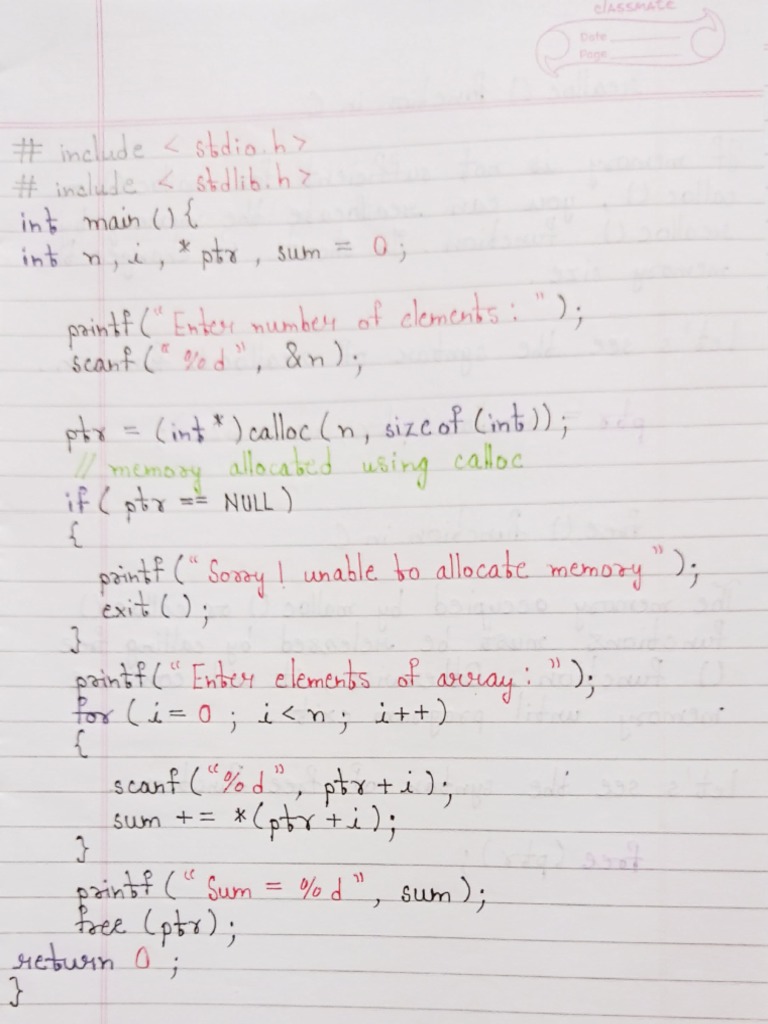 classmate
Date
Page
# include < stdio.h>
# include < stdlib.h>
int main () {
int n, i, * ptr, sum = 0;
printf (" Enter number of elements : ");
scanf (" %d", &n);
ptr = (int*) calloc (n, sizeof (int));
// memory allocated using calloc
if ( ptr == NULL )
{
printf (" Sorry ! unable to allocate memory ");
exit ();
}
printf (" Enter elements of array : ");
for ( i = 0 ; i < n ; i ++ )
{
scanf ("%d", ptr + i);
sum += *(ptr + i);
}
printf (" Sum = %d ", sum);
free (ptr);
return 0 ;
}